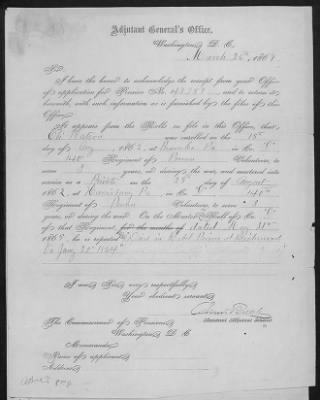 Adjutant General's Office,
Washington, D. C.
March 26th, 1868
Sir:
I have the honor to acknowledge the receipt from your Office
of application for Pension No. and to return it
herewith, with such information as is furnished by the files of this
Office.
It appears from the Rolls on file in this Office, that
Eli was enrolled on the
day of Aug, 1862, at Pa in Co.
Regiment of Penna Volunteers, to
serve 3 years, or during the war, and mustered into
service as a Private on the day of August
1862, at Harrisburg Pa in Co.
Regiment of Penna Volunteers, to serve 3
years, or during the war. On the Muster Roll of Co.
of that Regiment, for the months of dated May 31st
1865, he is reported Died in Rebel Prison at Richmond
Va Jany 1864
I am, Sir, very respectfully,
Your obedient servant,
Assistant Adjutant General
The Commissioner of Pensions,
Washington, D. C.
Memoranda:
Name of applicant,
Address,